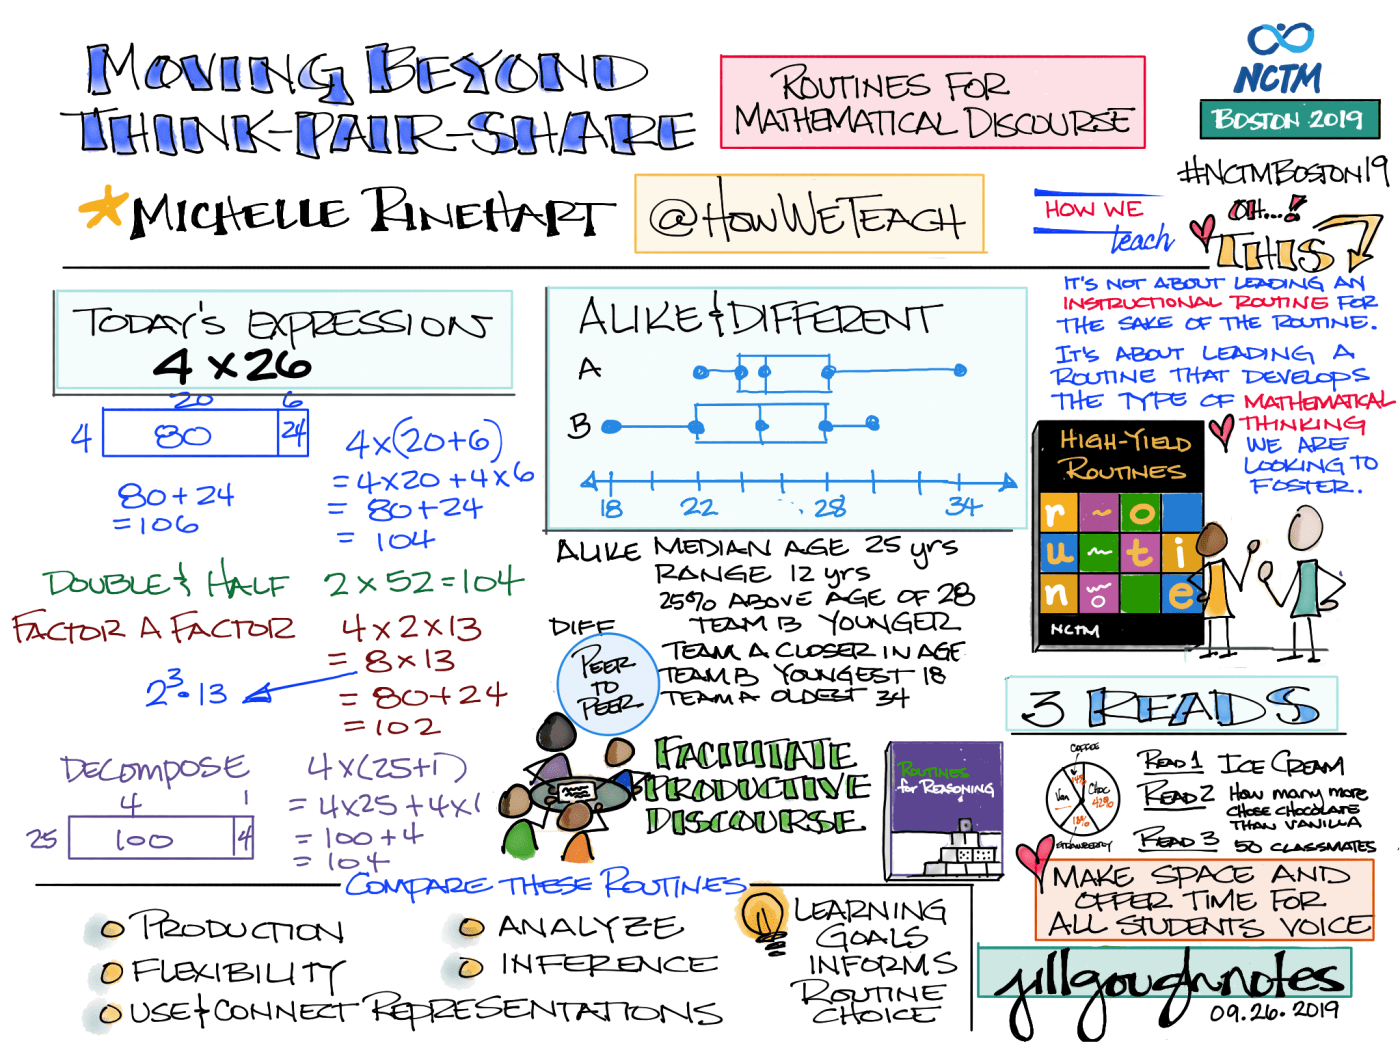 MOVING BEYOND
THINK-PAIR-SHARE
ROUTINES FOR
MATHEMATICAL DISCOURSE
NCTM
BOSTON 2019
#NCTMBOSTON19
MICHELLE RINEHART
@HOWWETEACH
HOW WE
teach
OH...!
THIS
IT'S NOT ABOUT LEADING AN
INSTRUCTIONAL ROUTINE FOR
THE SAKE OF THE ROUTINE.
IT'S ABOUT LEADING A
ROUTINE THAT DEVELOPS
THE TYPE OF MATHEMATICAL
THINKING
WE ARE
LOOKING TO
FOSTER.
TODAY'S EXPRESSION
4 x 26
20 6
4 80 24
80 + 24
= 106
4x(20+6)
= 4x20 + 4x6
= 80+24
= 104
DOUBLE & HALF 2 x 52 = 104
FACTOR A FACTOR 4 x 2 x 13
= 8 x 13
2³·13
= 80+24
= 102
DECOMPOSE 4x(25+1)
4 1
= 4x25 + 4x1
25 100 4
= 100+4
= 104
ALIKE & DIFFERENT
A
B
18 22 28 34
ALIKE MEDIAN AGE 25 yrs
RANGE 12 yrs
25% ABOVE AGE OF 28
DIFF TEAM B YOUNGER
TEAM A CLOSER IN AGE
TEAM B YOUNGEST 18
TEAM A OLDEST 34
PEER
TO
PEER
FACILITATE
PRODUCTIVE
DISCOURSE
HIGH-YIELD
ROUTINES
r ~ o
u ~ t i
n e
NCTM
ROUTINES
for REASONING
3 READS
COFFEE
Van
Choc
42%
18%
STRAWBERRY
READ 1 ICE CREAM
READ 2 HOW MANY MORE
CHOSE CHOCOLATE
THAN VANILLA
READ 3 50 CLASSMATES
MAKE SPACE AND
OFFER TIME FOR
ALL STUDENTS VOICE
COMPARE THESE ROUTINES
PRODUCTION
FLEXIBILITY
USE & CONNECT REPRESENTATIONS
ANALYZE
INFERENCE
LEARNING
GOALS
INFORMS
ROUTINE
CHOICE
jillgoughnotes
09.26.2019